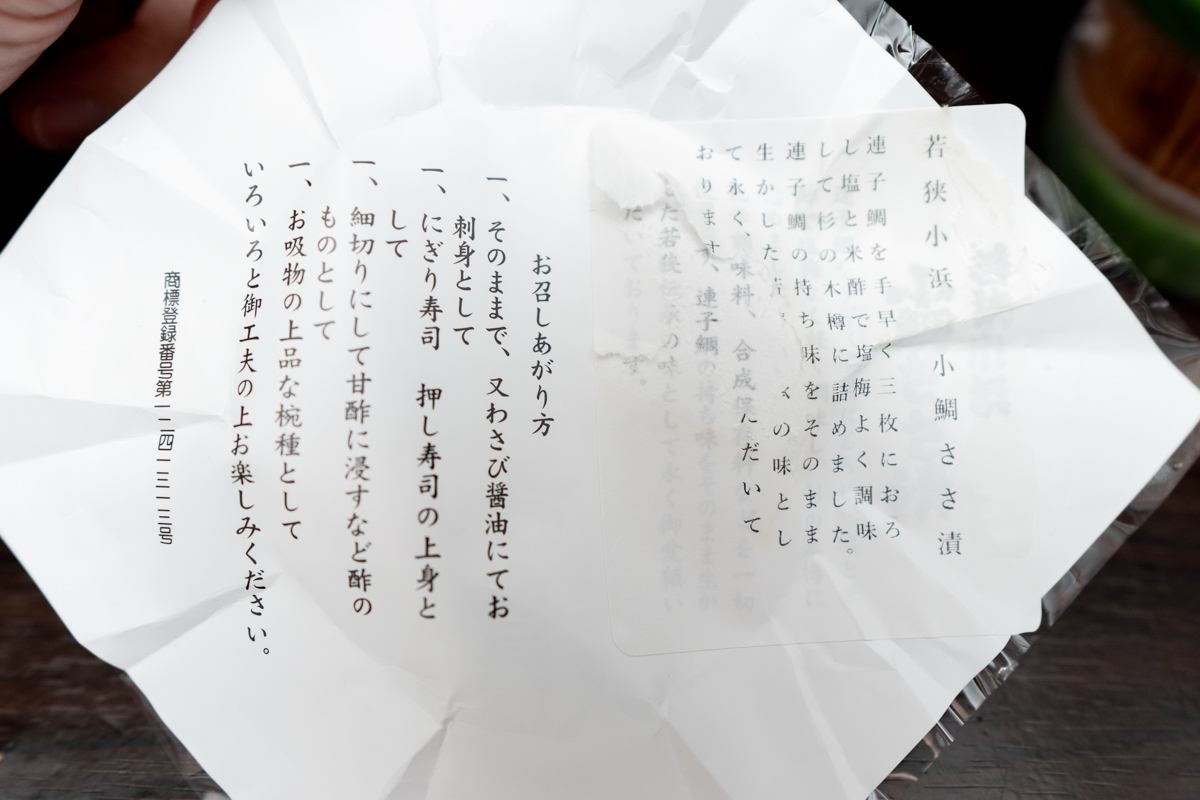 若狭小浜 小鯛ささ漬
連子鯛を手早く三枚におろ
し塩と米酢で塩梅よく調味
して杉の木樽に詰めました。
連子鯛の持ち味をそのまま
生かした の味とし
て永く、 味料、合成保 だいて
おります、連子鯛の持ち味をそのまま生か
た若 の味として永く
だいております。
お召しあがり方
一、そのままで、又わさび醤油にてお
刺身として
一、にぎり寿司 押し寿司の上身と
して
一、細切りにして甘酢に浸すなど酢の
ものとして
一、お吸物の上品な椀種として
いろいろと御工夫の上お楽しみください。
商標登録番号第一二四一三一三号